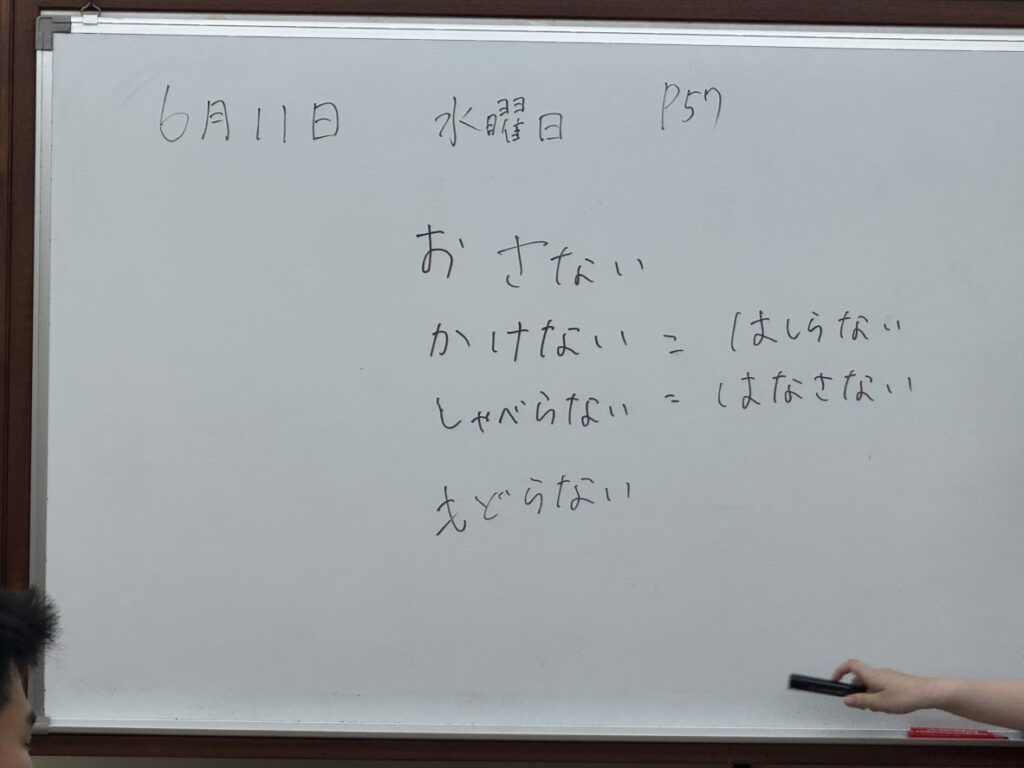 6月11日 水曜日 P57
おさない
かけない = はしらない
しゃべらない = はなさない
もどらない